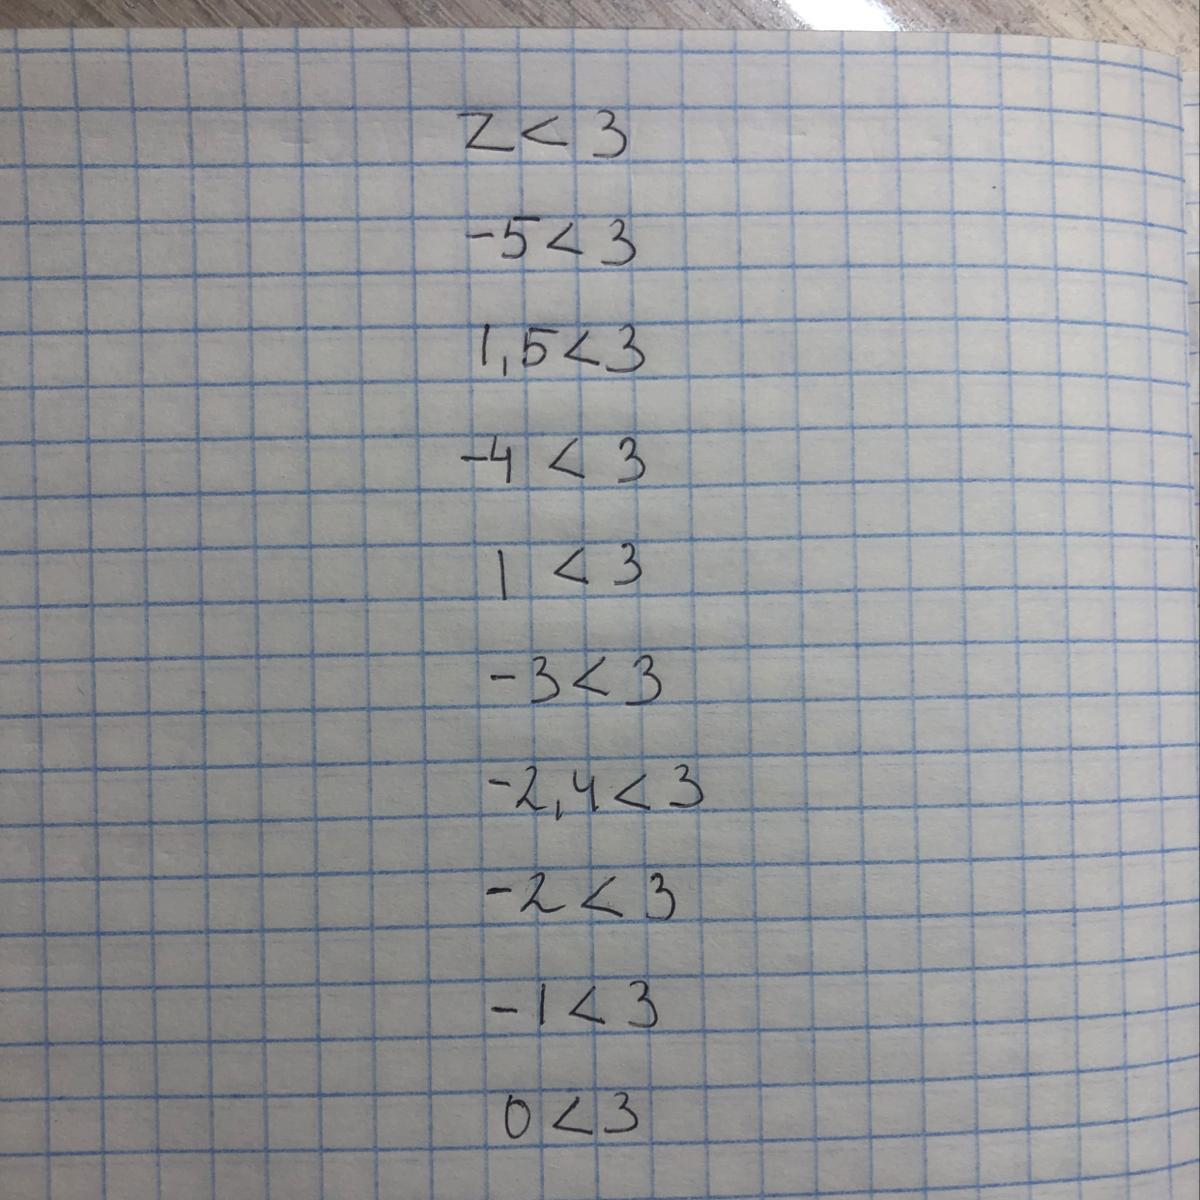 z < 3
-5 < 3
1,5 < 3
-4 < 3
1 < 3
-3 < 3
-2,4 < 3
-2 < 3
-1 < 3
0 < 3